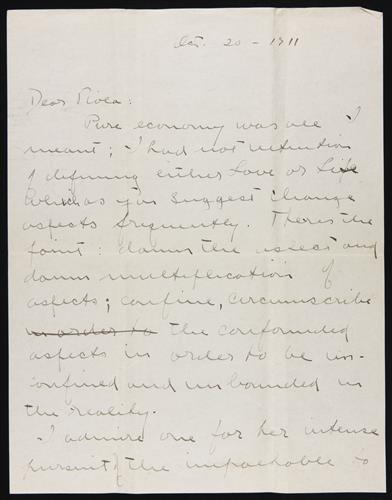 Oct. 20 - 1911
Dear Viola:
Pure economy was all I
meant; I had not intention
of defining either Love or Life
which as you suggest change
aspects frequently. There's the
point: damn the aspect and
damn multiplication of
aspects; confine, circumscribe
in order to the confounded
aspects in order to be un-
confined and unbounded in
the reality.
I admire one for her intense
pursuit of the impalpable to